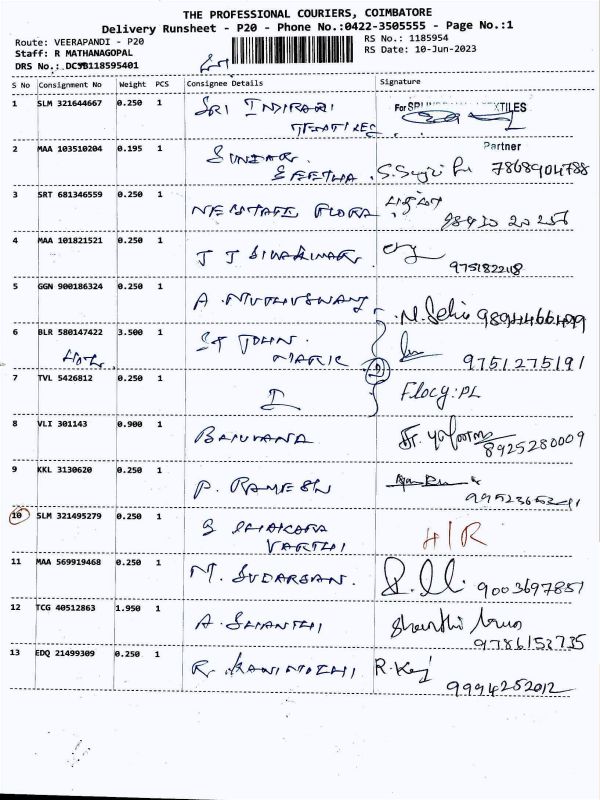 THE PROFESSIONAL COURIERS, COIMBATORE
Delivery Runsheet - P20 - Phone No.:0422-3505555 - Page No.:1
Route: VEERAPANDI - P20
RS No.: 1185954
Staff: R MATHANAGOPAL
RS Date: 10-Jun-2023
DRS No.: DCSB118595401
S No Consignment No Weight PCS Consignee Details Signature
1 SLM 321644667 0.250 1 SRI INDIRANI
For TEXTILES
Partner
2 MAA 103510204 0.195 1 SUNDAR
SEETHA 7868904788
3 SRT 681346559 0.250 1 FLORA
98420 20256
4 MAA 101821521 0.250 1 J J SIVAKUMAR
9751822118
5 GGN 900186324 0.250 1 A. MUTHUSWAMY
6 BLR 580147422 3.500 1 ST JOHN
MARIE 9751275191
7 TVL 5426812 0.250 1
8 VLI 301143 0.900 1
8925280009
9 KKL 3130620 0.250 1 P. RAMESH
10 SLM 321495279 0.250 1 H/R
11 MAA 569919468 0.250 1 M. SUDARSAN. 9003697851
12 TCG 40512863 1.950 1 A. SHANTHI Shanthi
9786153735
13 EDQ 21499309 0.250 1 R. KANIMOZHI R.
9994252012